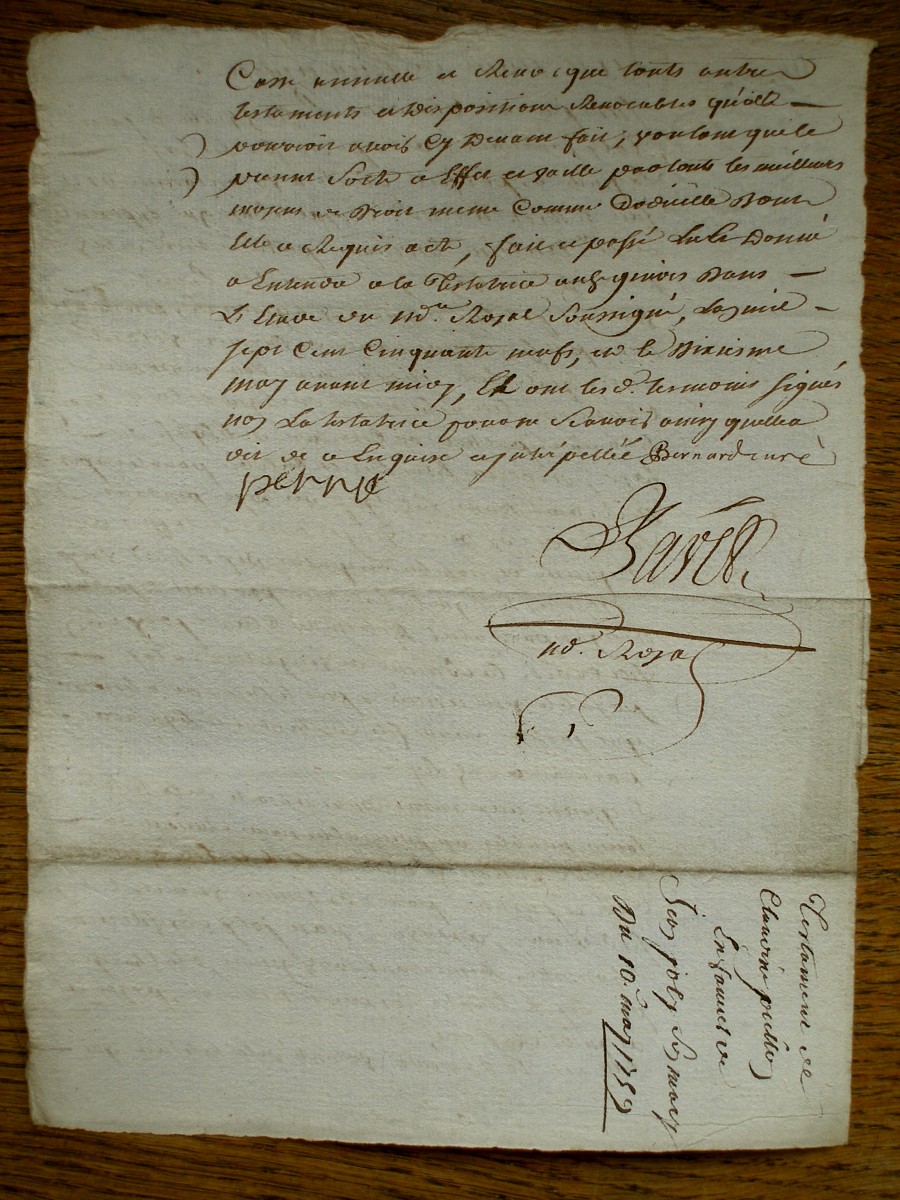 Casse annulle et Revoque touts autres
testaments et Dispositions Revocables qu'elle
pourroit avoir Cy Devant fait, voulant que le
present Sorte a Effet et vaille par touts les meilleurs
moyens de Droit meme Comme Codicille Dont
Elle a Requis acte, fait et passé Lu et Donné
a Entendre a la Testatrice
L' Etude du no.re Royal Soussigné, L'an mil
sept Cent Cinquante neuf, et le Dixieme
may avant midy, Et ont les d. temoins signés
non La testatrice pour ne Scavoir ainsy quelle a
dit de ce Enquise et interpellée Bernard curé
perrye
no. Royal
Testament de
Claudine
En faveur de
Jean joly Son mary
Du 10.e may 1759